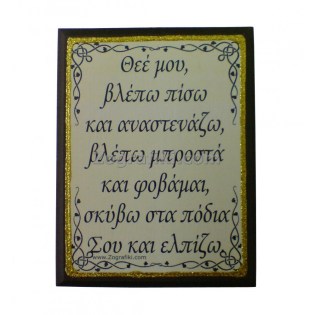 Θεέ μου,
βλέπω πίσω
και αναστενάζω,
βλέπω μπροστά
και φοβάμαι,
σκύβω στα πόδια
Σου και ελπίζω,
www.Zografiki.com